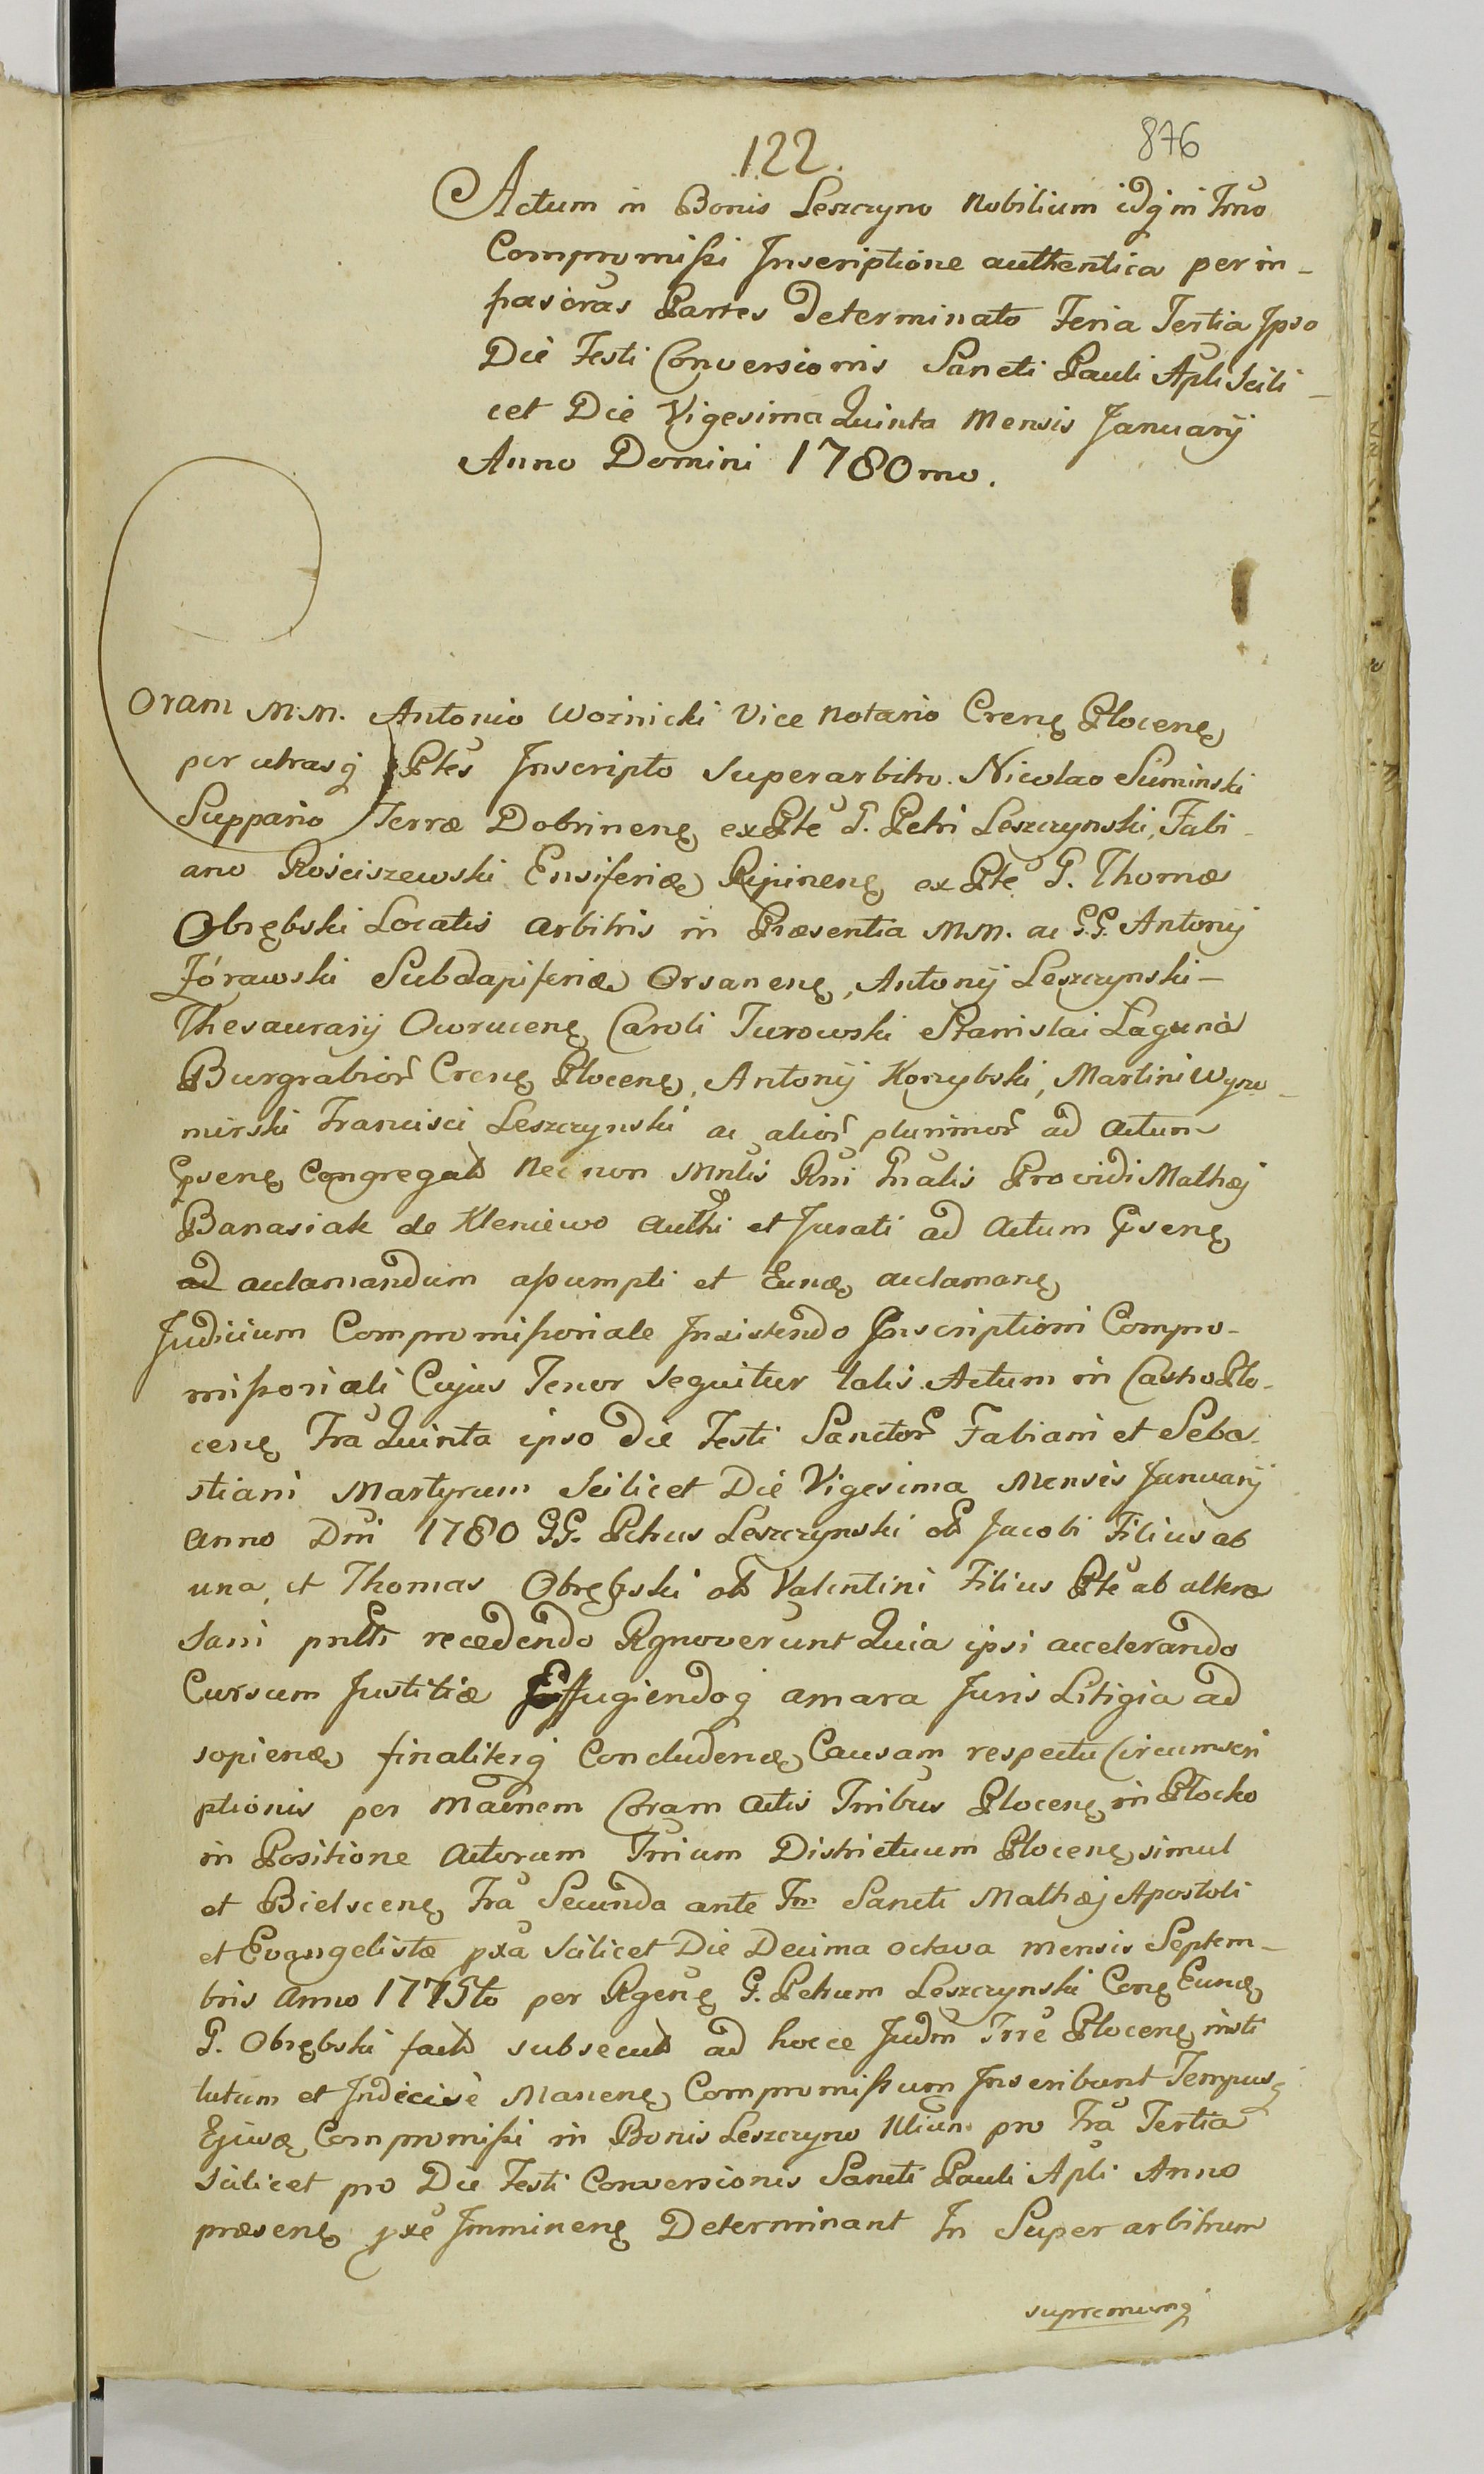 122.
876
Actum in Bonis Leszczyno Nobilium idq in Trno
Compromissi Inscriptione authentica per in-
frascras Partes Determinato Feria Tertia Ipso
Die Festi Conversionis Sancti Pauli Apli Scili-
cet Die Vigesima Quinta Mensis January
Anno Domini 1780mo.
Coram M.M. Antonio Woźnicki Vice Notario Crenę Plocenę
per utrasq Ptes Inscripto Superarbitro. Nicolao Suminski
Suppario Terræ Dobrinenę ex Pte G. Petri Leszczynski, Fabi-
ano Rościszewski Ensiferidæ Ripinenę ex Pte G. Thomæ
Obrębski Locatis Arbitris in Præsentia M.M. ac G.G. Antonij
Żórawski Subdapiferidæ Orsanenę, Antonij Leszczynski-
Thesaurarij Owrucenę Caroli Turowski Stanislai Laguna
Burgrabior Crenę Plocenę, Antonij Korzybski, Martini Wyzo-
mirski Francisci Leszczynski ac alior plurimor ad Actum
Psenę Congregat Nec non Mnlis Rni Gnalis Providi Mathæj
Banasiak de Kleniewo Authi et Jurati ad Actum Psenę
ad acclamandum assumpti et Eundę acclamanę
Judicium Compromissoriale Insistendo Inscriptioni Compro-
missoriali Cujus Tenor Sequitur talis. Actum in Castro Plo-
cenę Fra Quinta ipso Die Festi Sanctor Fabiani et Seba-
stiani Martyrum Scilicet Die Vigesima Mensis January
Anno Dni 1780 GG. Petrus Leszczynski olt Jacobi Filius ab
una, et Thomas Obrębski olt Valentini Filius Pte ab altera
Sani prtti recedendo Rgnoverunt Quia ipsi accelerando
Cursum Justitiæ Effugiendoq amara Juris Litigia ad
sopiendę finaliterq Concludendę Causam respectu Circumscri
ptionis per Manem Coram Actis Tribus Plocenę in Płocko
in Positione Actorum Trium Districtuum Plocenę simul
et Bielscenę Fra Secunda ante Fm Sancti Mathæj Apostoli
et Evangelistæ pxa Scilicet Die Decima octava mensis Septem-
bris Anno 1775to per Rgenę G. Petrum Leszczynski Conę Eundę
G. Obrębski fact subsecut ad hocce Judm Trre Plocenę insti
tutam et Indecise Manenę Compromissum Inscribunt Tempusq
Ejusdę Compromissi in Bonis Leszczyno Nlium pro Fra Tertia
Scilicet pro Die Festi Conversionis Sancti Pauli Apli Anno
præsenę pxe Imminenę Determinant In Superarbitrum
supremumq